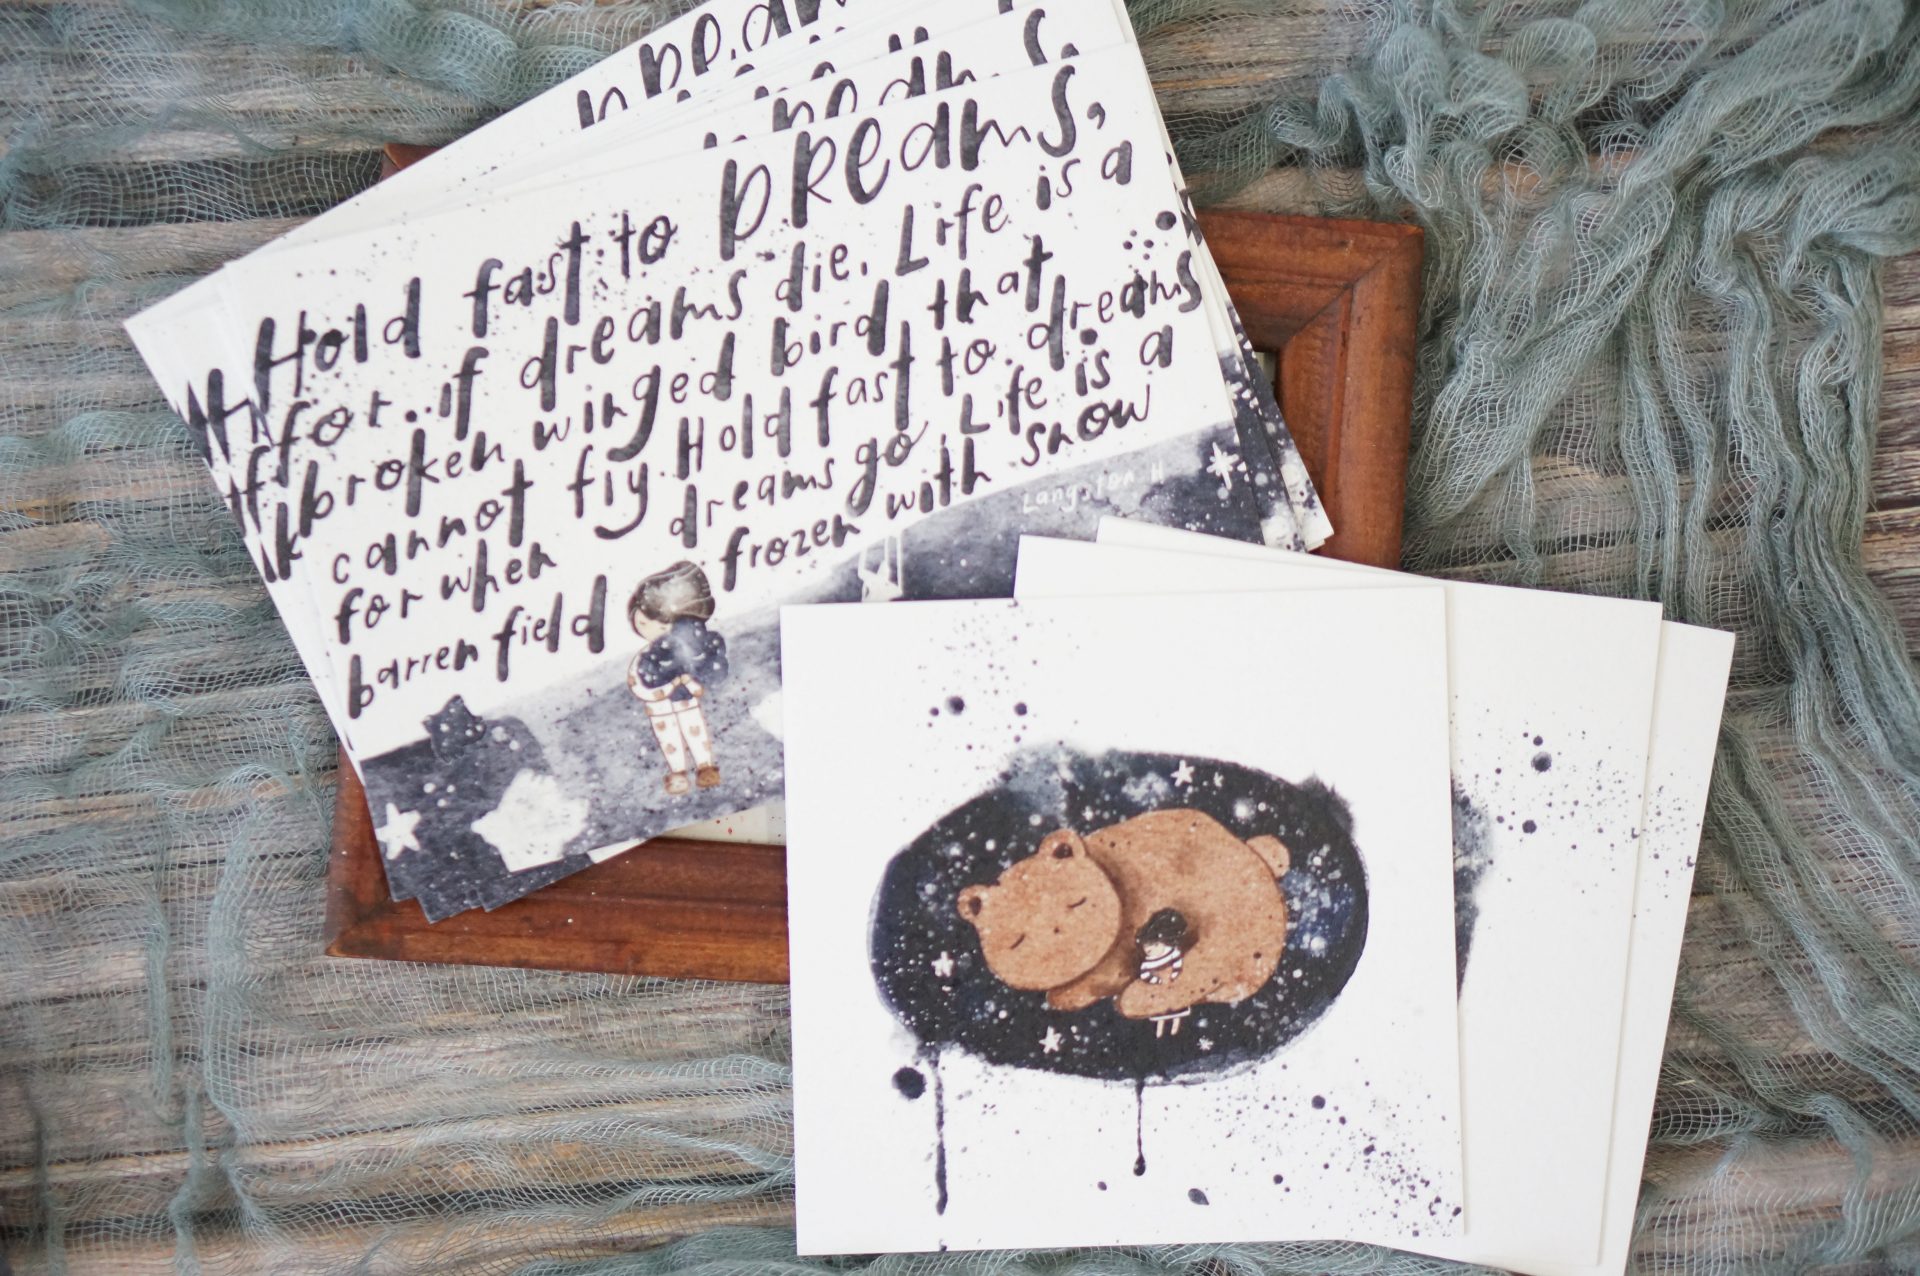 Hold fast to DREAMS,
for if dreams die. Life is a
broken winged bird, that
cannot fly. Hold fast to dreams
for when dreams go, Life is a
barren field frozen with snow
Langston H